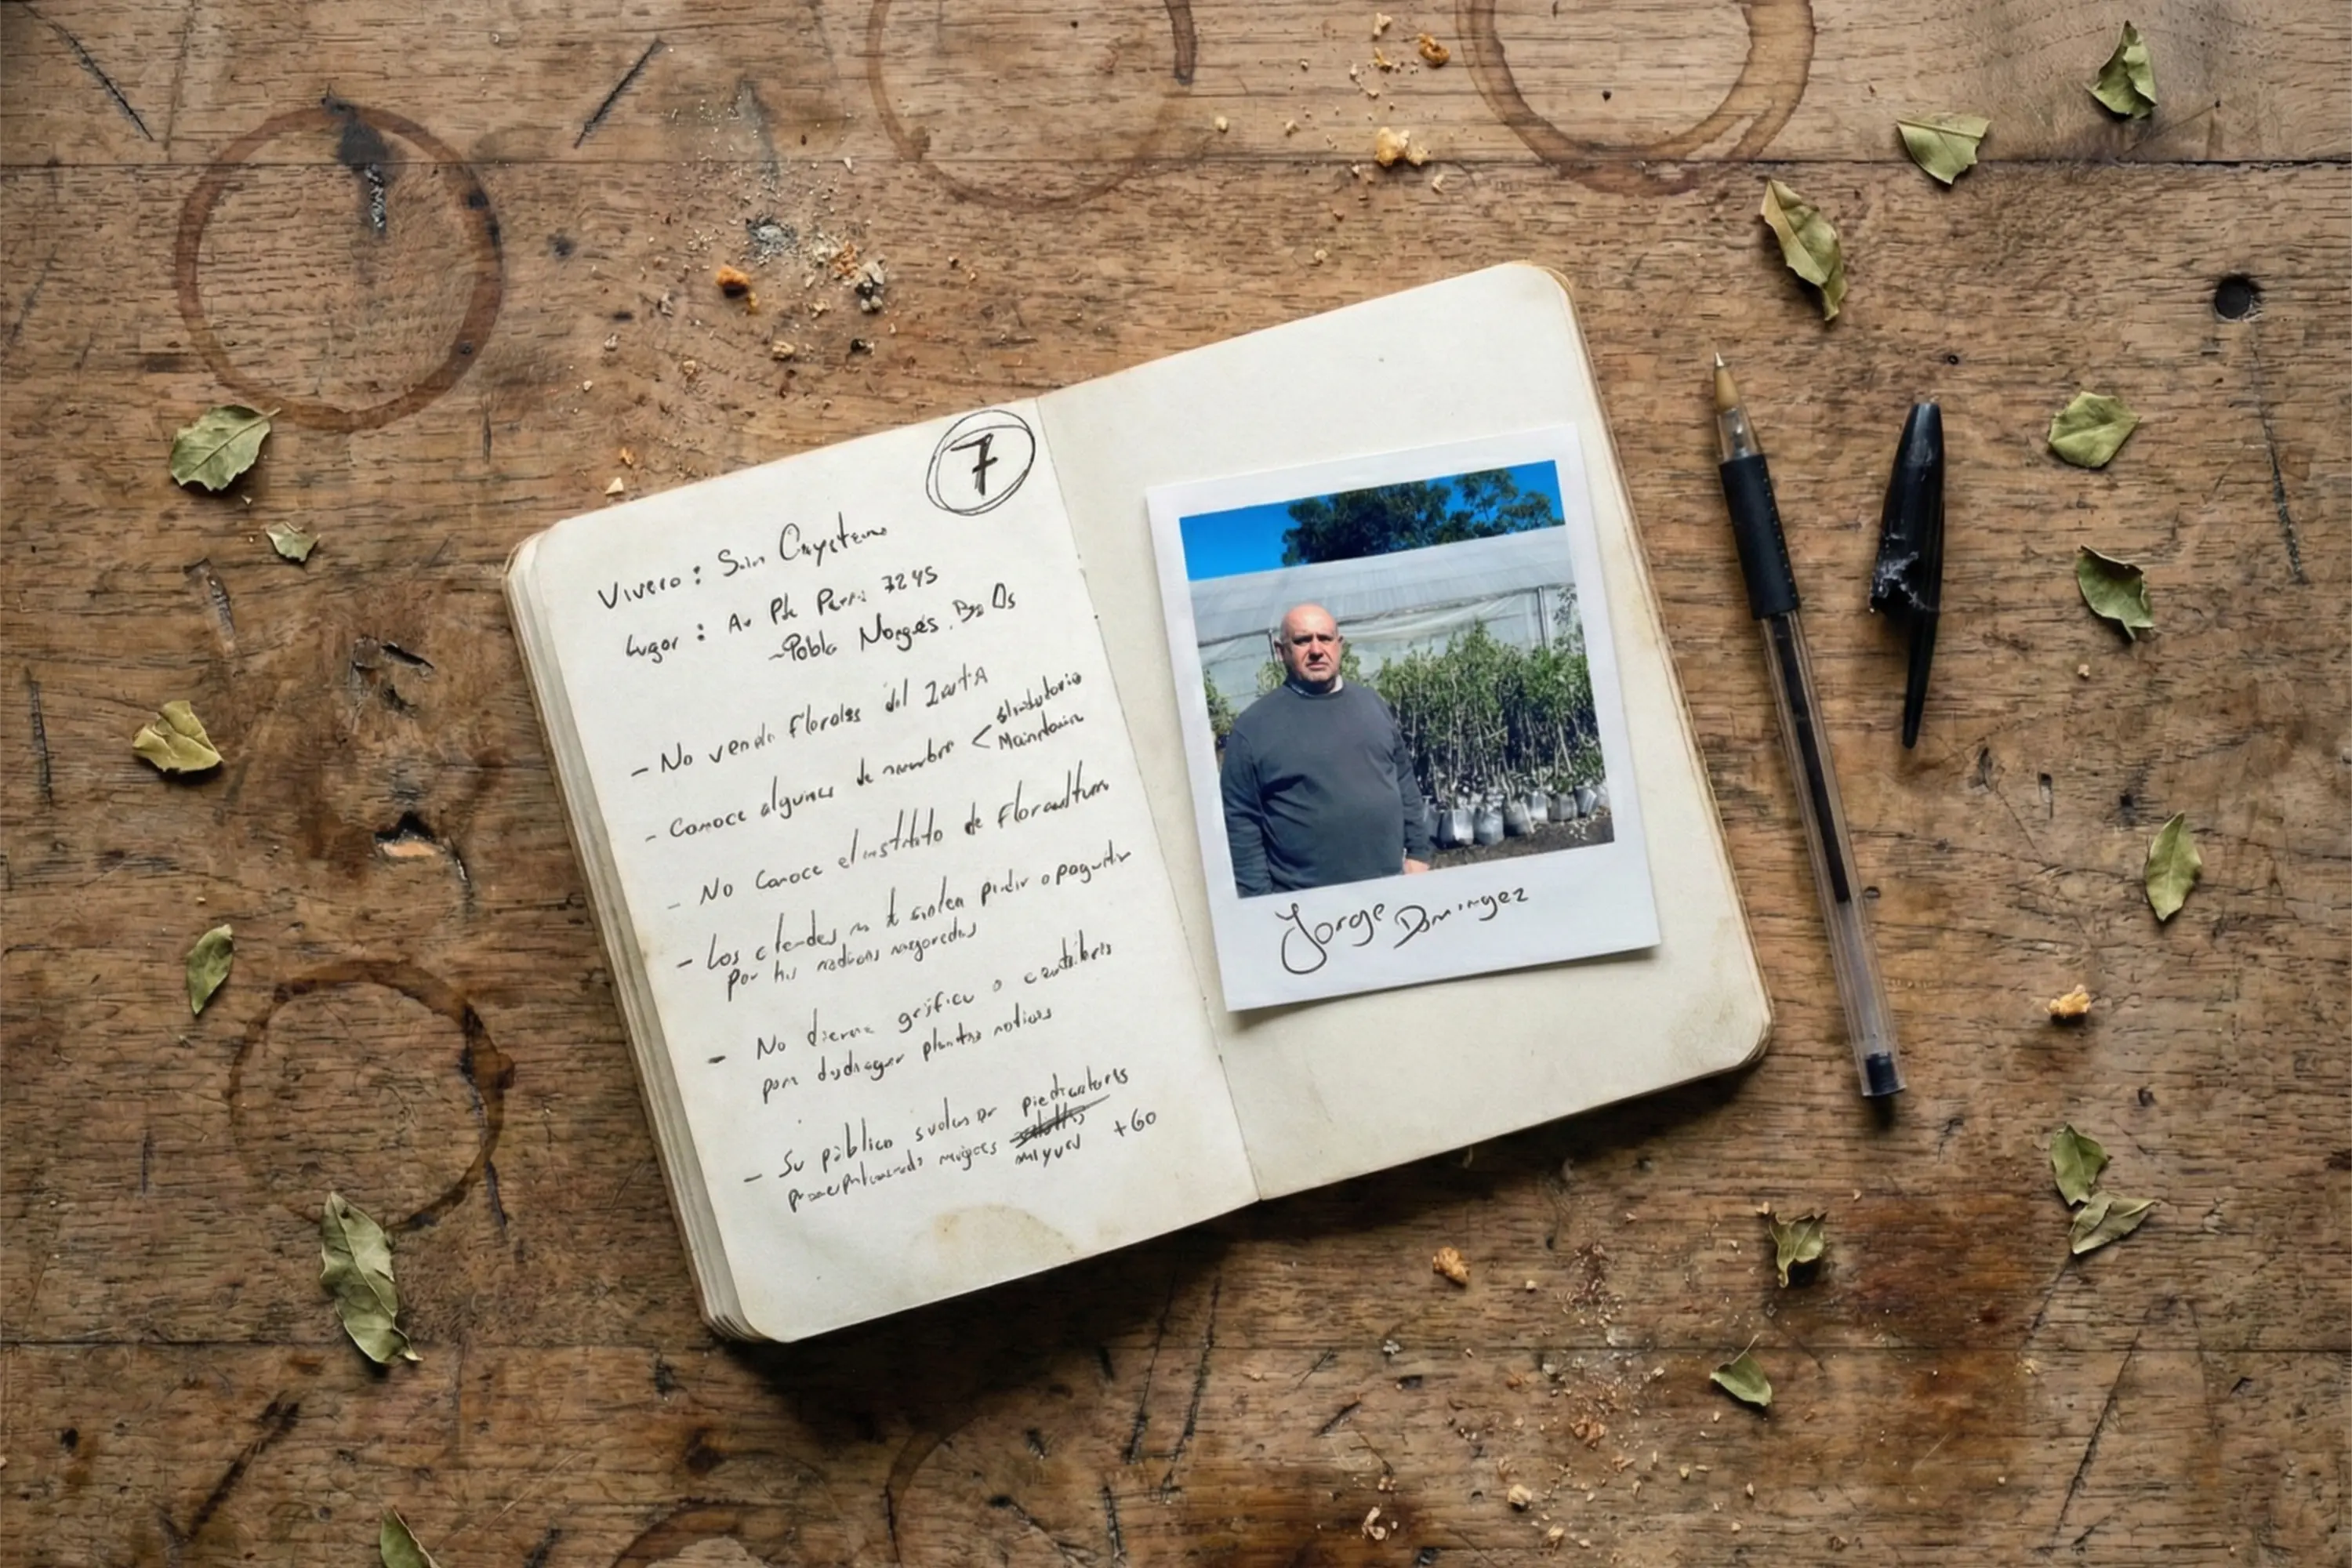 7
Vivero: San Cayetano
Lugar: Av Pte Perón 7245
-Pablo Nogués, Bs As
- No vende florales del INTA
- Conoce algunas de nombre <
Mainumbi
- No conoce el instituto de Floricultura
- Los clientes no le suelen pedir o preguntar
por las nativas mejoradas
- No tienen gráfica o
para distinguir plantas nativas
- Su público suelen ser
mujeres mayores +60
Jorge Dominguez